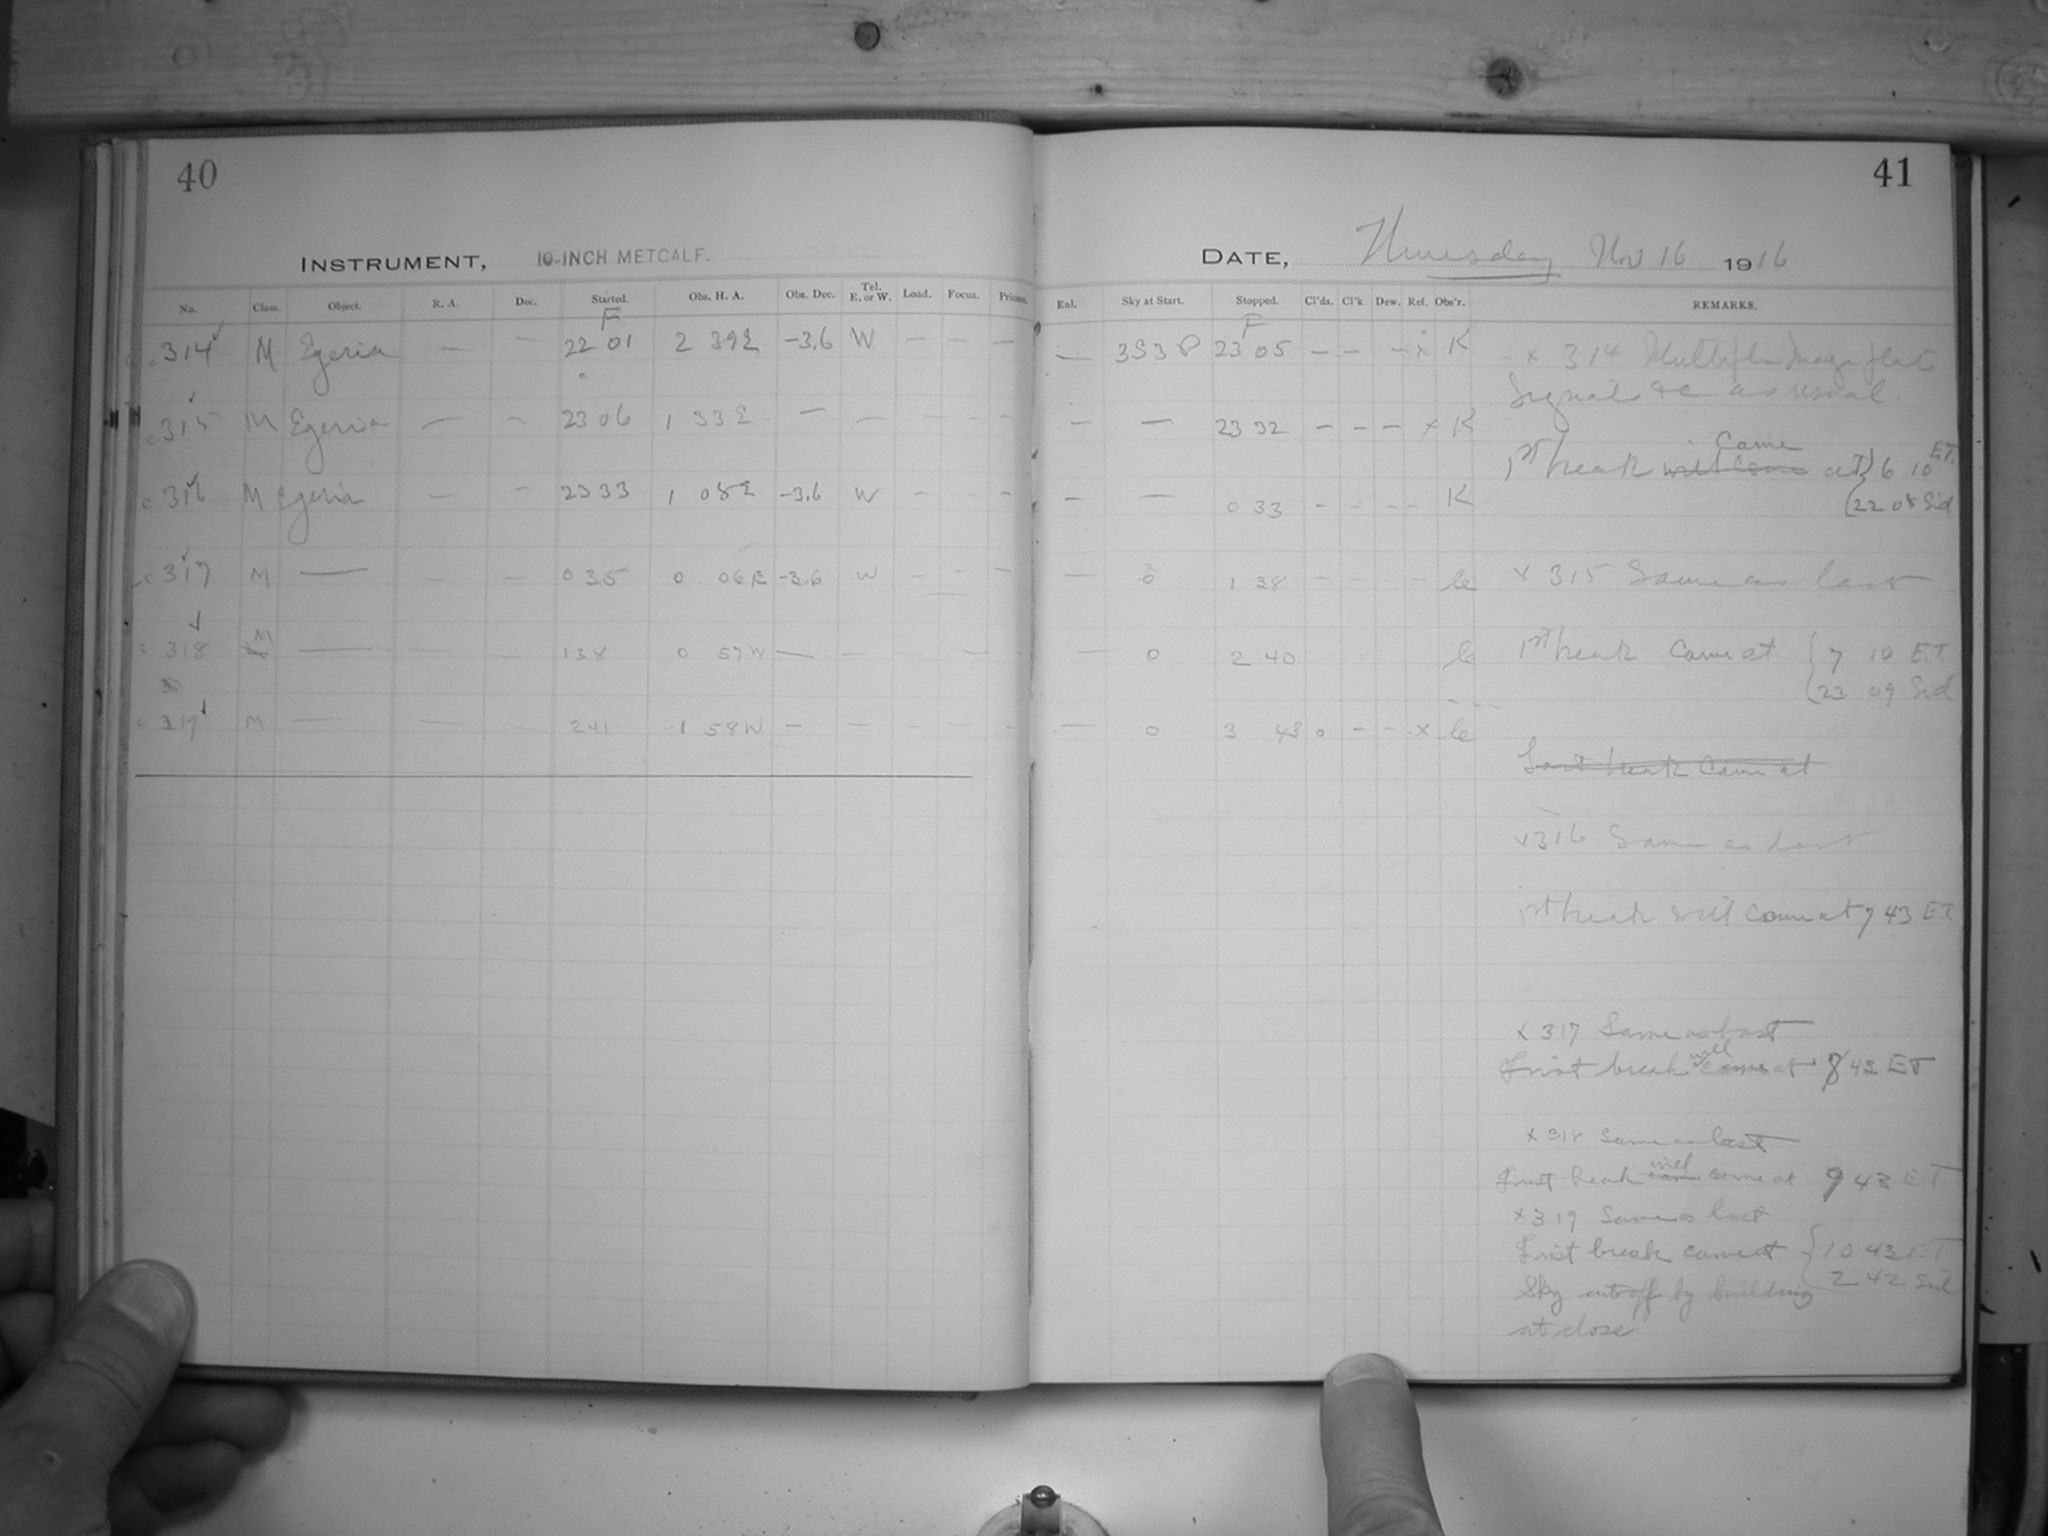 40
INSTRUMENT, 10-INCH METCALF.
No. Class. Object. R. A. Dec. Started. Obs. H. A. Obs. Dec. Tel. E. or W. Load. Focus. Prisms.
F
c 314 M Egeria — — 22 01 2 39 E -3.6 W — — —
c 315 M Egeria — — 23 06 1 33 E — — — — —
c 316 M Egeria — — 23 33 1 08 E -3.6 W — — —
c 317 M — — — 0 35 0 06 E -3.6 W — — —
c 318 M — — — 1 38 0 57 W — — — — —
c 319 M — — — 2 41 1 58 W — — — — —
41
DATE, Thursday Nov 16 1916
Eal. Sky at Start. Stopped. Cl'ds. Cl'k. Dew. Ref. Obs'r. REMARKS.
F
— 3S3P 23 05 — — — x K
— — 23 32 — — — x K
— — 0 33 — — — — K
— 0 1 38 — — — —
— 0 2 40
— 0 3 43 0 — — x
x 314
Signal &c as usual.
came
1st break will come at 6 10 E.T.
22 08 Sid
x 315 Same as last
1st break came at 7 10 E.T.
23 09 Sid
Last break came at
x 316 Same as last
1st break will come at 7 43 E.T.
x 317 Same as last
will
First break come at 8 42 ET
x 318 Same as last
will
First break come at 9 43 ET
x 319 Same as last
First break came at 10 43 ET
2 42 Sid
Sky cut off by building
at close